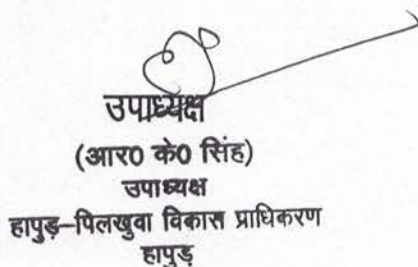 उपाध्यक्ष
(आर0 के0 सिंह)
उपाध्यक्ष
हापुड़–पिलखुवा विकास प्राधिकरण
हापुड़